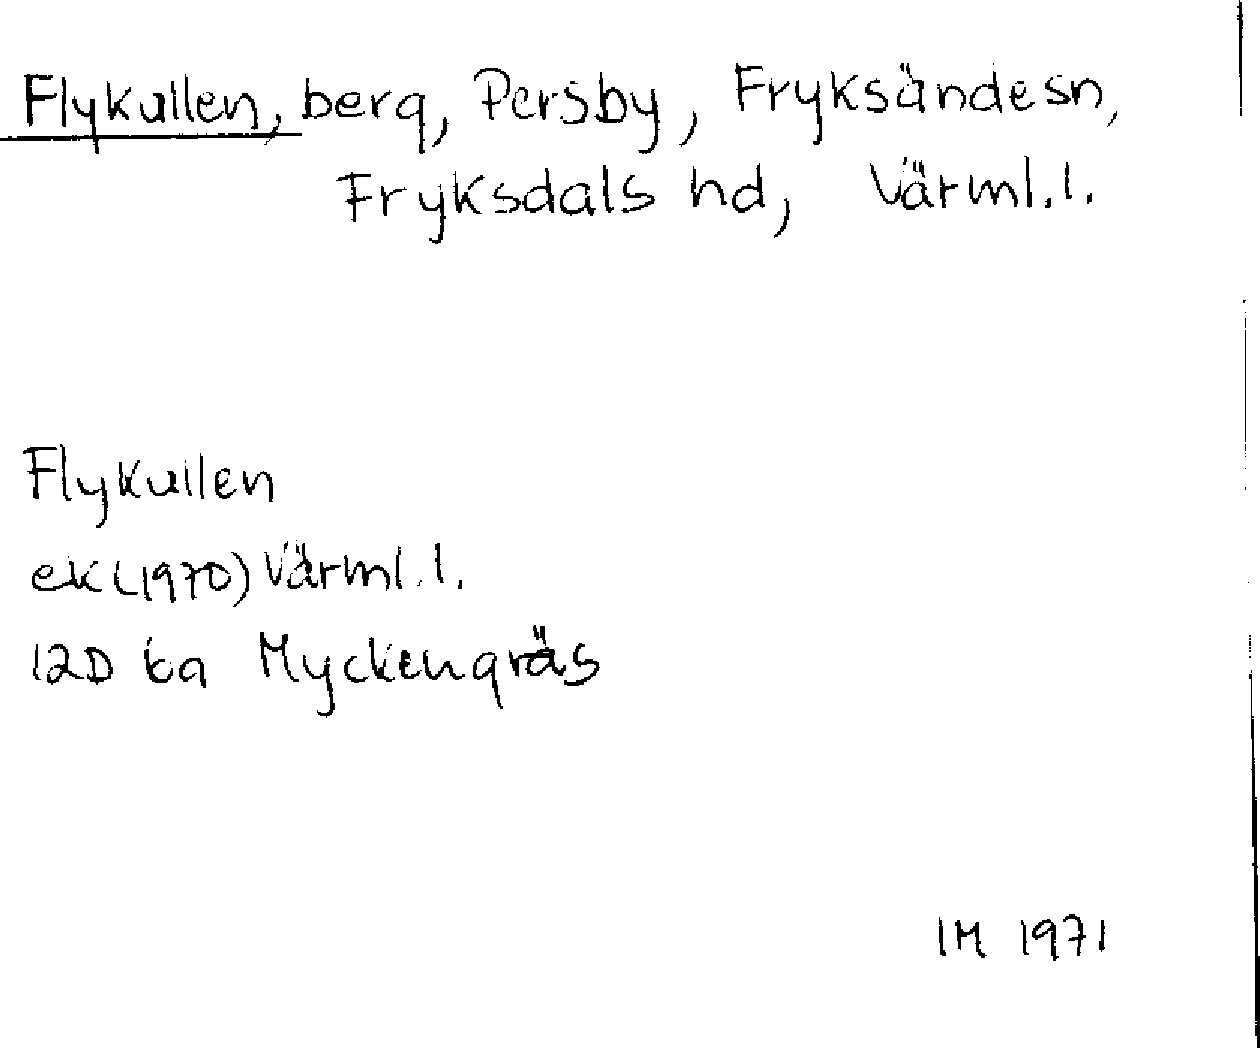 Flykullen, berg, Persby, Fryksände sn,
Fryksdals hd, Värml.l.
Flykullen
ek (1970) Värml.l.
12D 6a Myckengräs
IM 1971